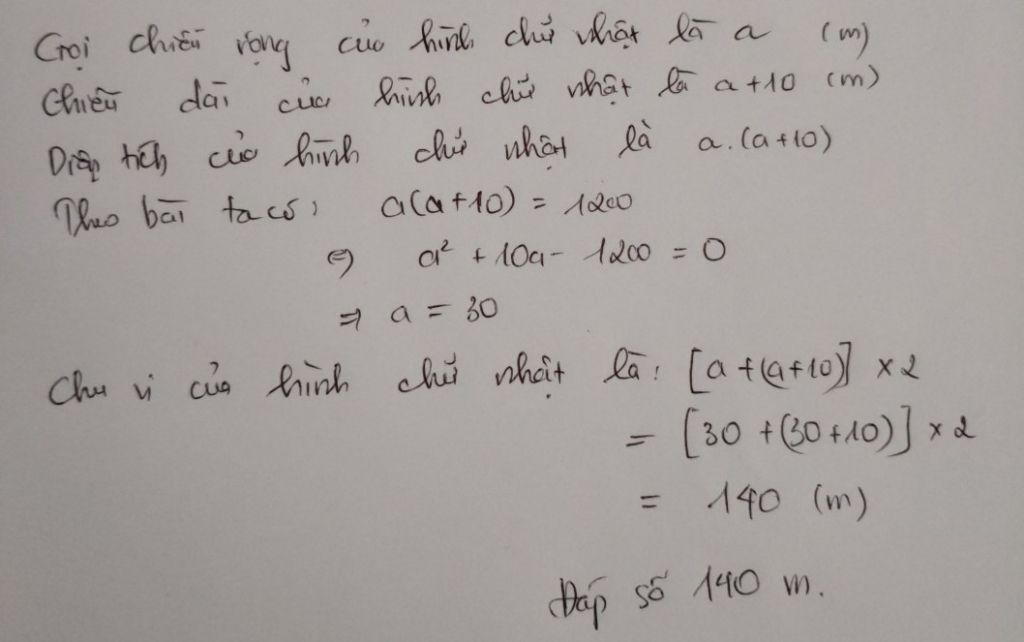 Gọi chiều rộng của hình chữ nhật là a (m)
Chiều dài của hình chữ nhật là a+10 (m)
Diện tích của hình chữ nhật là a.(a+10)
Theo bài ta có: a(a+10) = 1200
⇔ a² + 10a - 1200 = 0
⇒ a = 30
Chu vi của hình chữ nhật là: [a+(a+10)] × 2
= [30 + (30+10)] × 2
= 140 (m)
Đáp số 140 m.